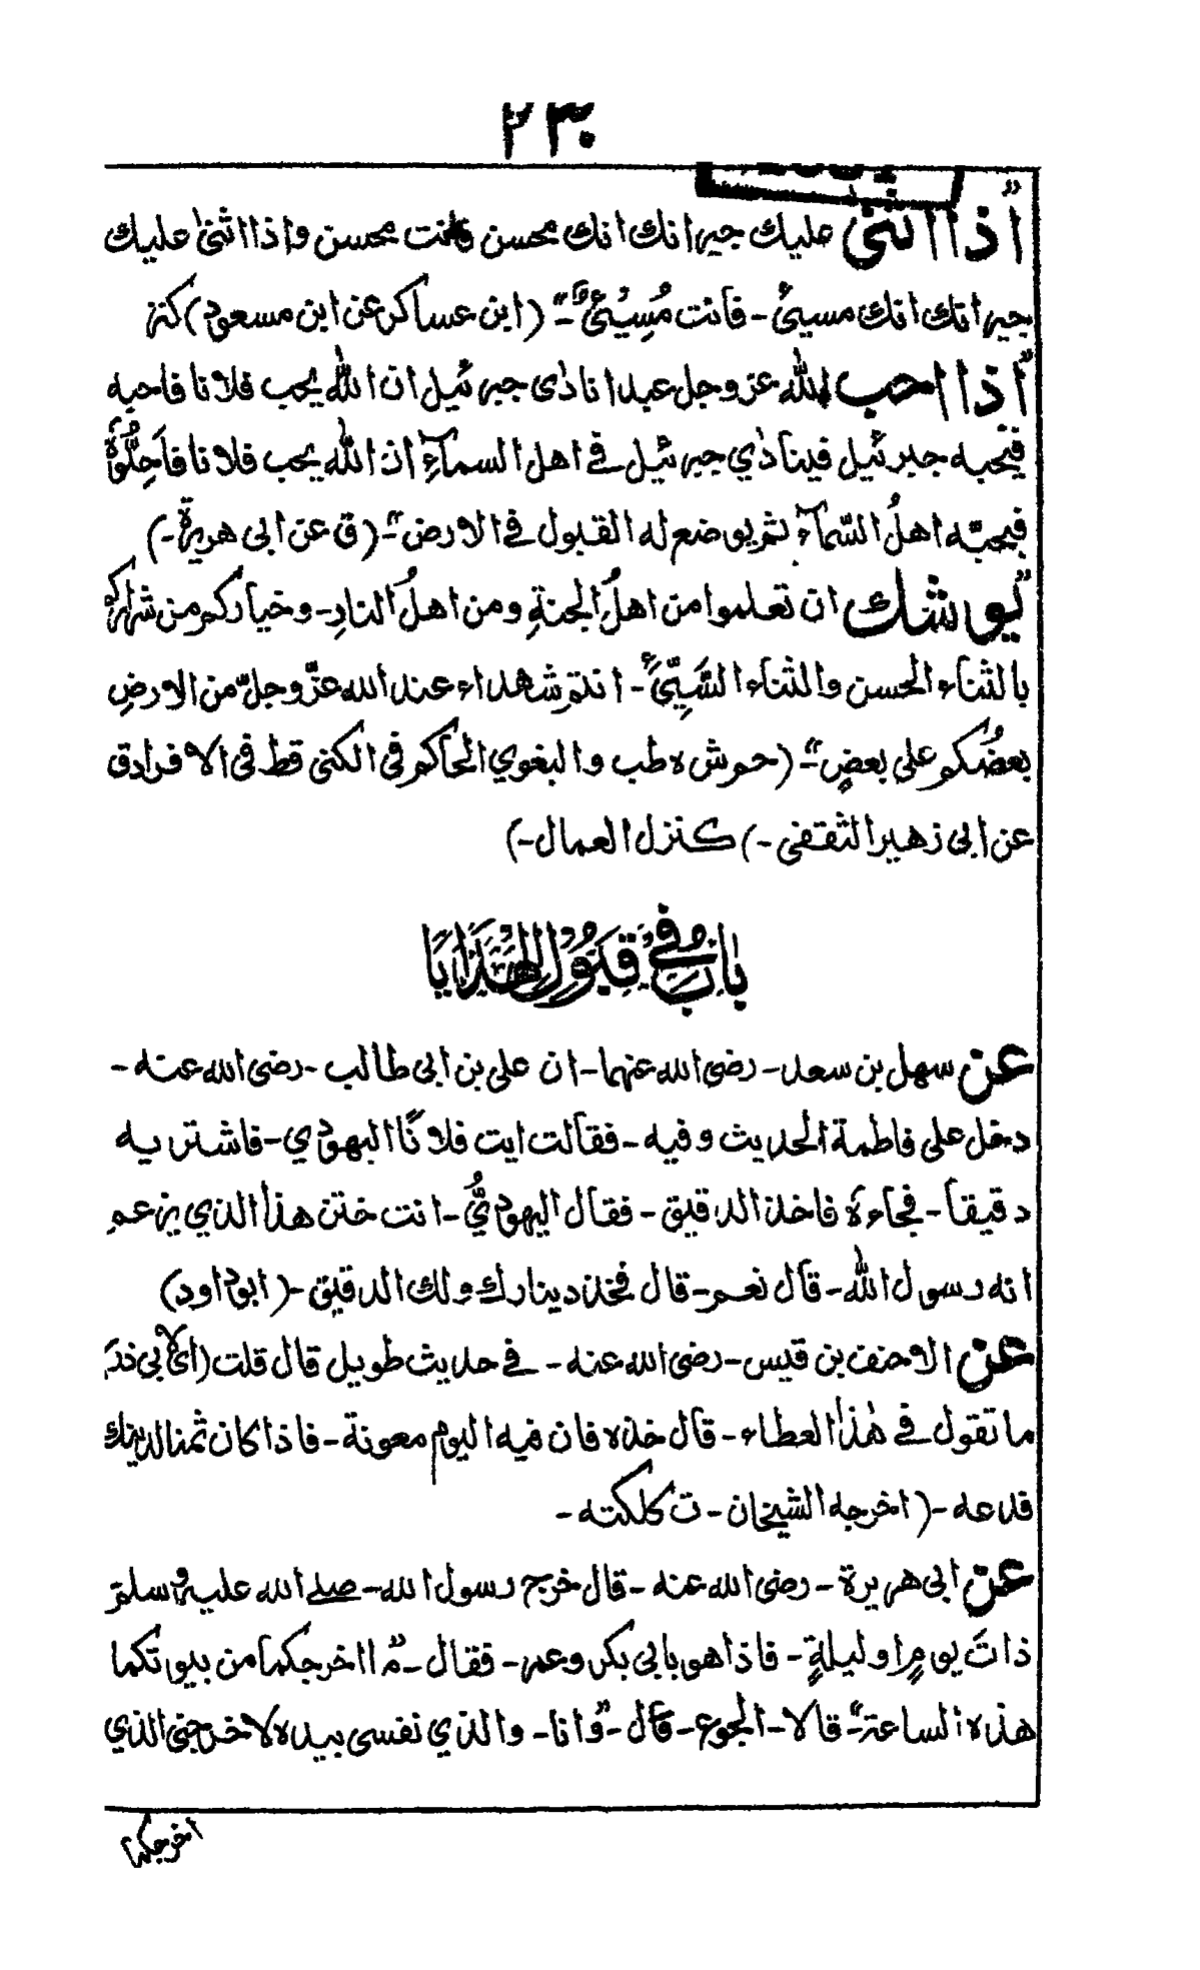 ٢٣٠
"اذا اثنى عليك جيرانك انك محسن فانت محسن واذا اثنى عليك
جيرانك انك مسيئ - فانت مُسِيْئٌ" - (ابن عساكر عن ابن مسعود) كنز
"اذا احب الله عز وجل عبدا نادى جبرئيل ان الله يحب فلانا فاحبه
فيُحبه جبرئيل فينادي جبرئيل في اهل السمآءِ ان الله يحب فلانا فاَحِبُّوْهُ
فيحبّه اهلُ السّمآء ثم يوضع له القبول في الارض" - (ق عن ابى هريرة -)
"يوشك ان تعلموا من اهلُ الجنةِ ومن اهلُ النارِ - وخياركم من شراركم
بالثناء الحسن والثناء السَّيِّئِ - انتم شهداء عند الله عزّ وجلّ من الارضِ
بعضُكم على بعضٍ" - (حم ش ه طب والبغوي الحاكم في الكنى قط في الافراد ق
عن ابى زهير الثقفى -) كنزل العمال -)
بَابٌ فِيْ قَبُوْلِ الْهَدَايَا
عن سهل بن سعد - رضى الله عنهما - ان على بن ابى طالب - رضى الله عنه -
دخل على فاطمة الحديث وفيه - فقالت ايت فلانًا اليهودي - فاشتر به
دقيقا - فجاءه فاخذ الدقيق - فقال اليهوديُّ - انت ختن هذا الذي يزعم
انه رسول الله - قال نعم - قال فخذ دينارك ولك الدقيق - (ابوداود)
عن الاحنف بن قيس - رضى الله عنه - في حديث طويل قال قلت (اى لابى ذر
ما تقول في هٰذا العطاء - قال خذه فان فيه اليوم معونة - فاذا كان ثمنا لدينك
فدعه - (اخرجه الشيخان - ت كلكته -
عن ابى هريرة - رضى الله عنه - قال خرج رسول الله - صلے الله عليه وسلم
ذاتَ يومٍ او ليلةٍ - فاذا هو بابى بكر وعمر - فقال - "ما اخرجكما من بيوتكما
هذه الساعة" - قالا - الجوع - قال - "وانا - والذي نفسى بيده لاخرجنى الذي
اخرجكما